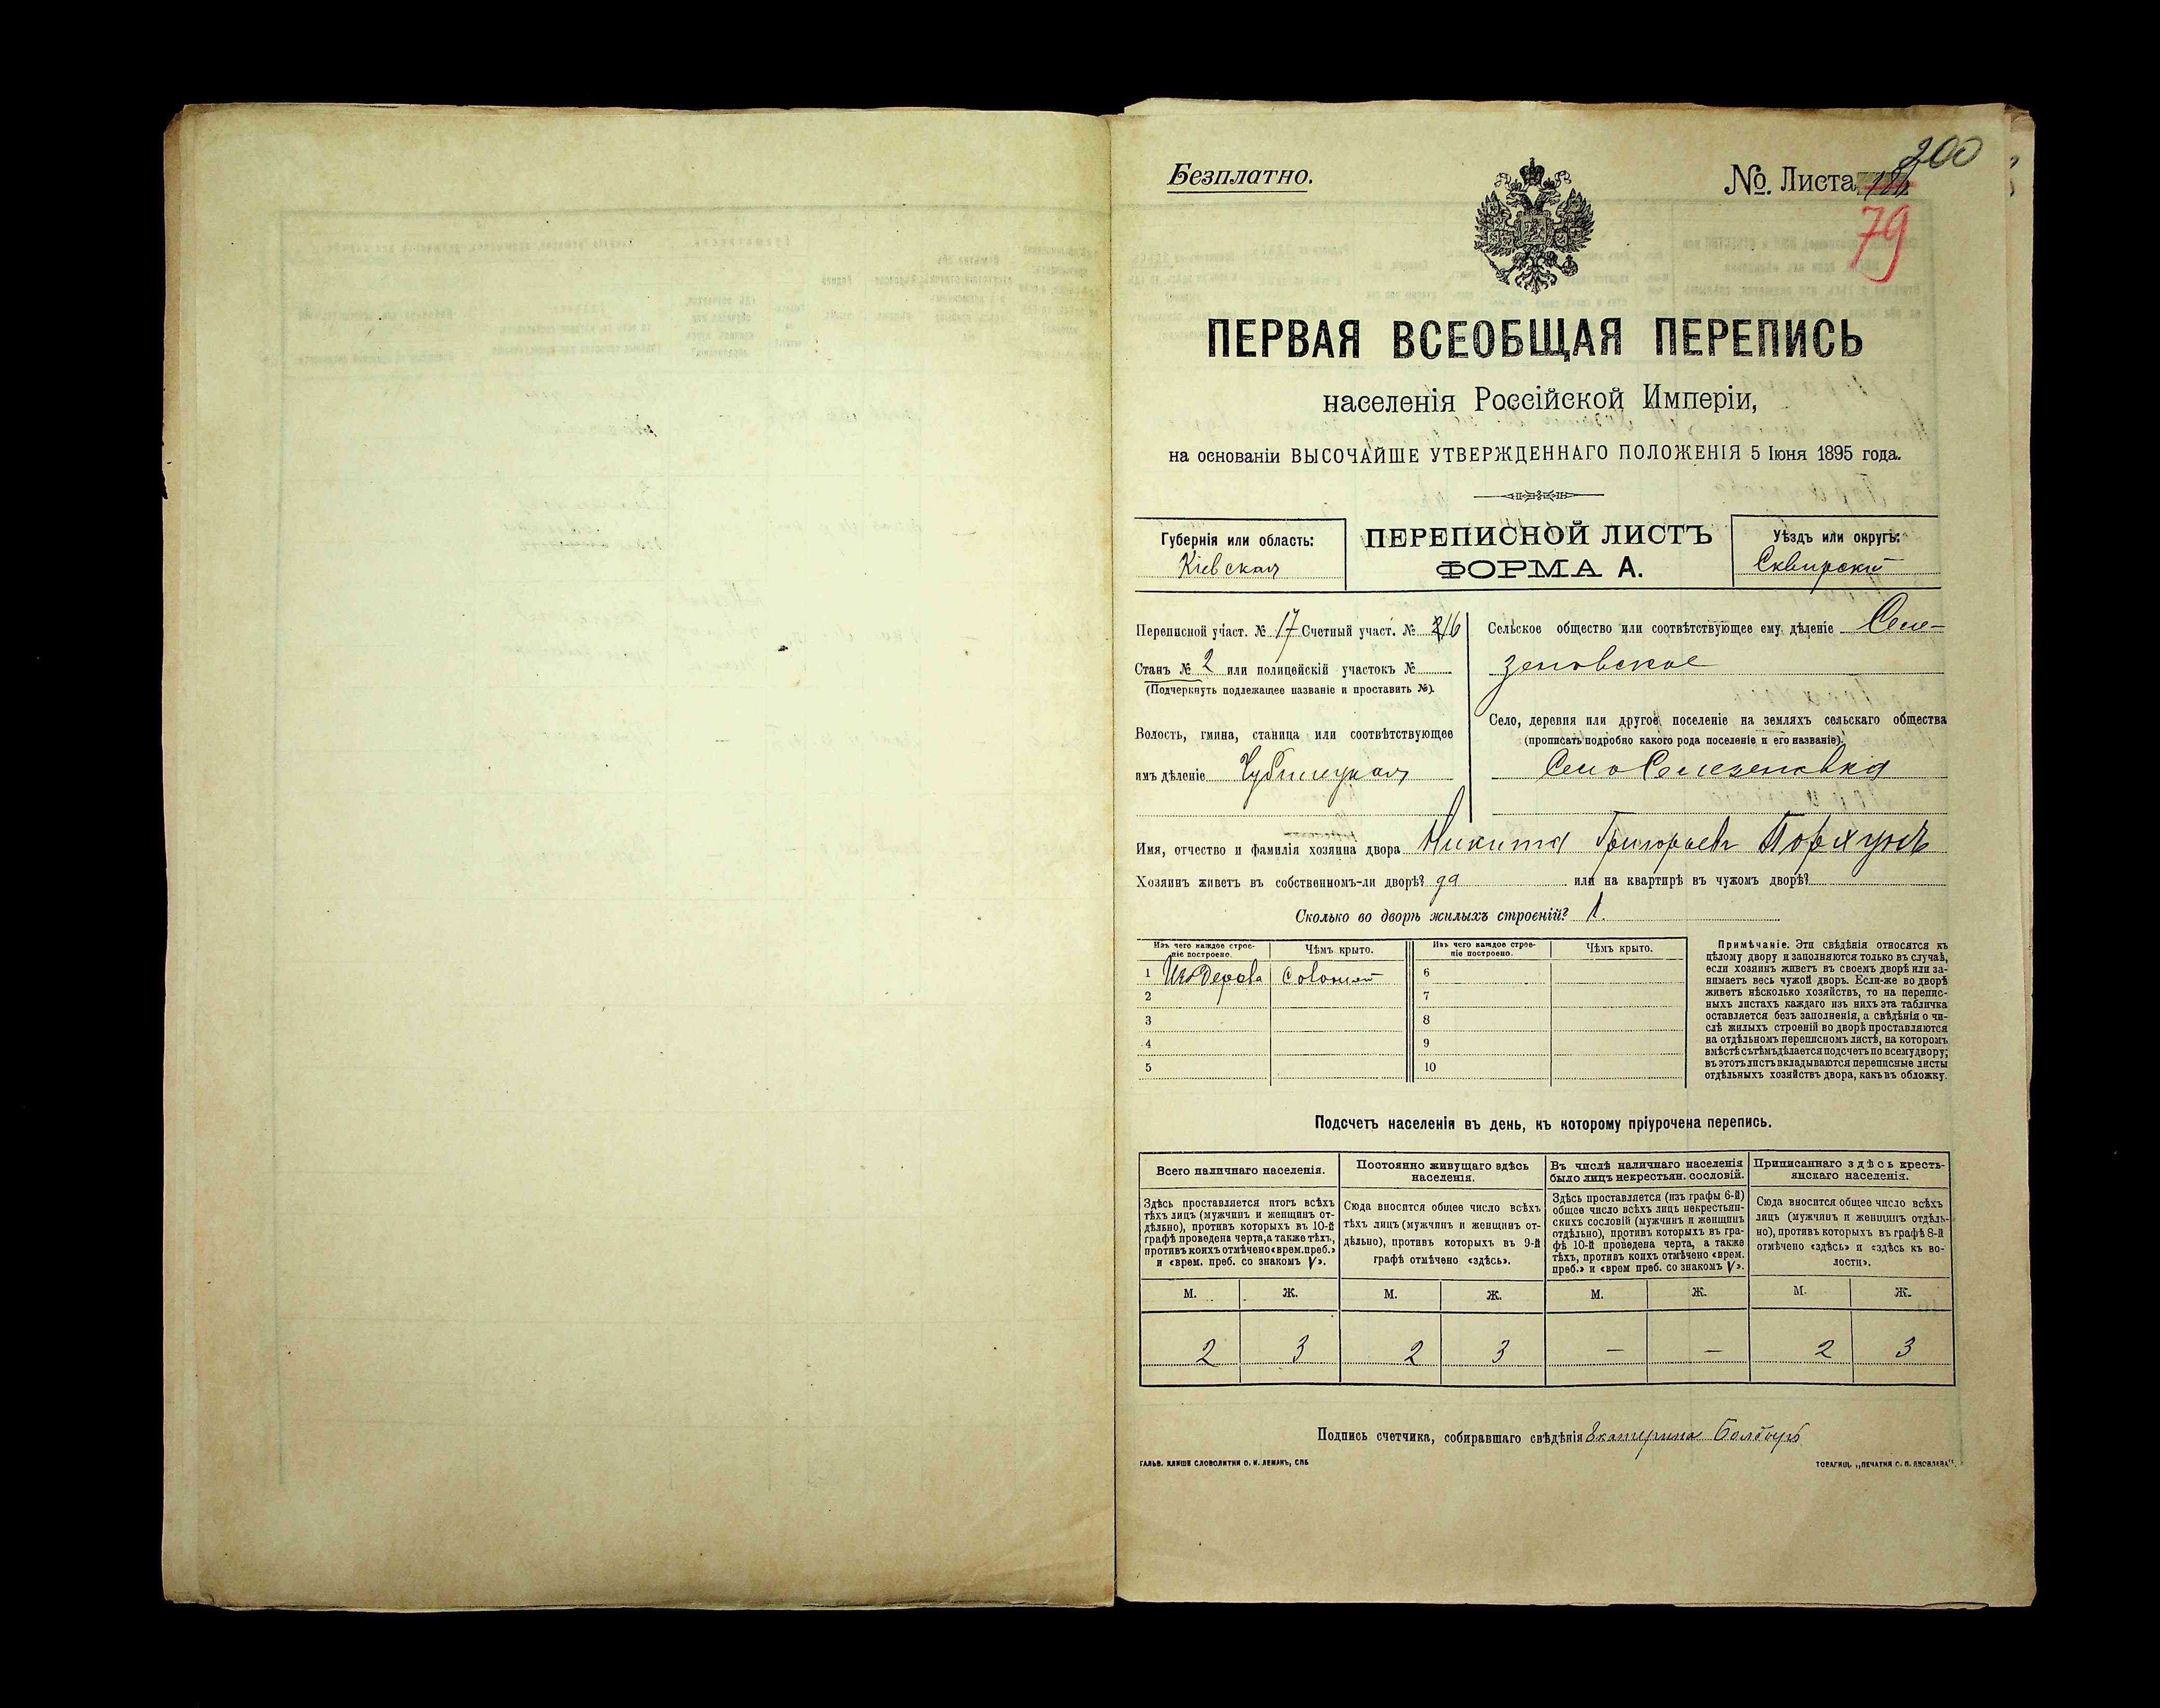 Безплатно.
№. Листа 200
79
ПЕРВАЯ ВСЕОБЩАЯ ПЕРЕПИСЬ
населенія Россійской Имперіи,
на основаніи ВЫСОЧАЙШЕ УТВЕРЖДЕННАГО ПОЛОЖЕНІЯ 5 Іюня 1895 года.
Губернія или область:
Кіевская
ПЕРЕПИСНОЙ ЛИСТЪ
ФОРМА А.
Уѣздъ или округъ:
Сквирскій
Переписной участ. № 17 Счетный участ. № 16
Станъ № 2 или полицейскій участокъ №
(Подчеркнуть подлежащее названіе и проставить №).
Волость, гмина, станица или соотвѣтствующее
имъ дѣленіе
Сельское общество или соотвѣтствующее ему дѣленіе Селе-
зеновское
Село, деревня или другое поселеніе на земляхъ сельскаго общества
(прописать подробно какого рода поселеніе и его названіе).
Село Селезеновка
Имя, отчество и фамилія хозяина двора Никита Григорьевъ
Хозяинъ живетъ въ собственномъ-ли дворѣ? да или на квартирѣ въ чужомъ дворѣ?
Сколько во дворѣ жилыхъ строеній? 1.
Изъ чего каждое строе-
ніе построено.
Чѣмъ крыто.
Изъ чего каждое строе-
ніе построено.
Чѣмъ крыто.
1 Изъ дерева соломой 6
2 7
3 8
4 9
5 10
Примѣчаніе. Эти свѣдѣнія относятся къ
цѣлому двору и заполняются только въ случаѣ,
если хозяинъ живетъ въ своемъ дворѣ или за-
нимаетъ весь чужой дворъ. Если-же во дворѣ
живетъ нѣсколько хозяйствъ, то на перепис-
ныхъ листахъ каждаго изъ нихъ эта табличка
оставляется безъ заполненія, а свѣдѣнія о чи-
слѣ жилыхъ строеній во дворѣ проставляются
на отдѣльномъ переписномъ листѣ, на которомъ
вмѣстѣ съ тѣмъ дѣлается подсчетъ по всему двору;
въ этотъ листъ вкладываются переписные листы
отдѣльныхъ хозяйствъ двора, какъ въ обложку.
Подсчетъ населенія въ день, къ которому пріурочена перепись.
Всего наличнаго населенія.
Здѣсь проставляется итогъ всѣхъ
тѣхъ лицъ (мужчинъ и женщинъ от-
дѣльно), противъ которыхъ въ 10-й
графѣ проведена черта, а также тѣхъ,
противъ коихъ отмѣчено «врем. преб.»
и «врем. преб. со знакомъ V».
Постоянно живущаго здѣсь
населенія.
Сюда вносится общее число всѣхъ
тѣхъ лицъ (мужчинъ и женщинъ от-
дѣльно), противъ которыхъ въ 9-й
графѣ отмѣчено «здѣсь».
Въ числѣ наличнаго населенія
было лицъ некрестьян. сословій.
Здѣсь проставляется (изъ графы 6-й)
общее число всѣхъ лицъ некрестьян-
скихъ сословій (мужчинъ и женщинъ
отдѣльно), противъ которыхъ въ гра-
фѣ 10-й проведена черта, а также
тѣхъ, противъ коихъ отмѣчено «врем.
преб.» и «врем преб. со знакомъ V».
Приписаннаго здѣсь кресть-
янскаго населенія.
Сюда вносится общее число всѣхъ
лицъ (мужчинъ и женщинъ отдѣль-
но), противъ которыхъ въ графѣ 8-й
отмѣчено «здѣсь» и «здѣсь къ во-
лости».
М. Ж. М. Ж. М. Ж. М. Ж.
2 3 2 3 — — 2 3
Подпись счетчика, собиравшаго свѣдѣнія Екатерина
ГАЛЬВ. КЛИШЕ СЛОВОЛИТНИ О. И. ЛЕМАНЪ, СПБ
ТОВАРИЩ. „ПЕЧАТНЯ С. П. ЯКОВЛЕВА“.